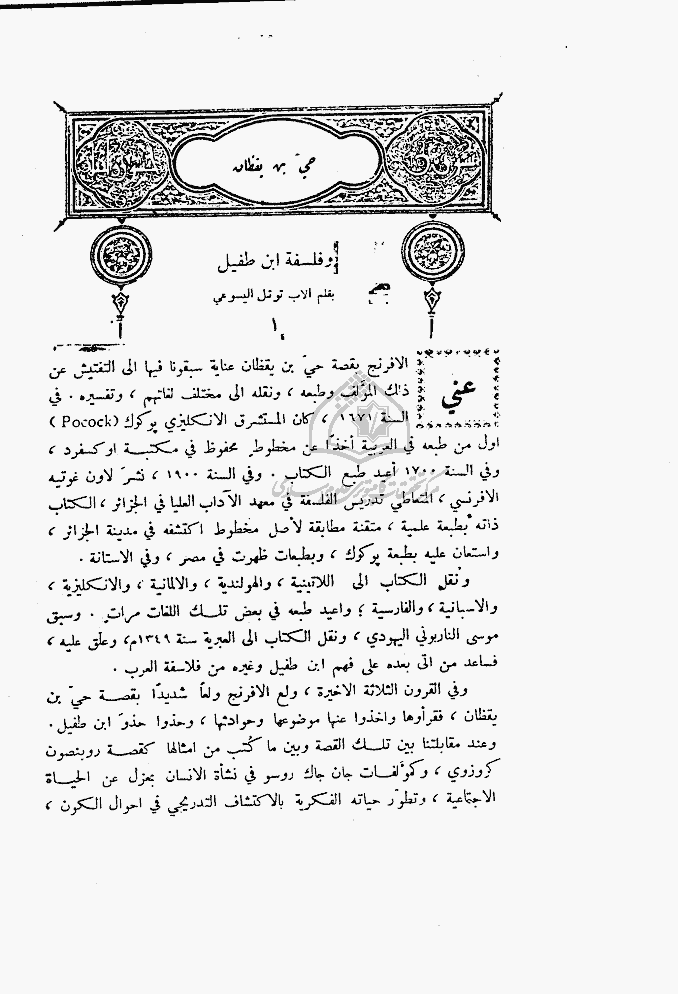 حيّ بن يقظان
وفلسفة ابن طفيل
بقلم الاب توتل اليسوعي
١
عني الافرنج بقصة حيّ بن يقظان عناية سبقونا فيها الى التفتيش عن
ذلك المؤلَّف وطبعه ، ونقله الى مختلف لغاتهم ، وتفسيره . في
السنة ١٦٧١ ، كان المستشرق الانكليزي پوكوك (Pocock)
اول من طبعه في العربية أخذًا عن مخطوط محفوظ في مكتبة اوكسفرد ،
وفي السنة ١٧٠٠ أعيد طبع الكتاب . وفي السنة ١٩٠٠ ، نشر لاون غوتيه
الافرنسي ، المتعاطي تدريس الفلسفة في معهد الآداب العليا في الجزائر ، الكتاب
ذاته بطبعة علمية ، متقنة مطابقة لأصل مخطوط اكتشفه في مدينة الجزائر ،
واستعان عليه بطبعة پوكوك ، وبطبعات ظهرت في مصر ، وفي الاستانة .
ونُقل الكتاب الى اللاتينية ، والهولندية ، والالمانية ، والانكليزية ،
والاسبانية ، والفارسية ؛ واعيد طبعه في بعض تلك اللغات مرات . وسبق
موسى الناربوني اليهودي ، ونقل الكتاب الى العبرية سنة ١٣٤٩م، وعلّق عليه ،
فساعد من اتى بعده على فهم ابن طفيل وغيره من فلاسفة العرب .
وفي القرون الثلاثة الاخيرة ، ولع الافرنج ولعاً شديدًا بقصة حيّ بن
يقظان ، فقرأوها واخذوا عنها موضوعها وحوادثها ، وحذوا حذوَ ابن طفيل .
وعند مقابلتنا بين تلك القصة وبين ما كُتب من امثالها كقصة روبنصون
كروزوي ، وكمؤلفات جان جاك روسو في نشأة الانسان بمعزل عن الحياة
الاجتماعية ، وتطوّر حياته الفكرية بالاكتشاف التدريجي في احوال الكون ،